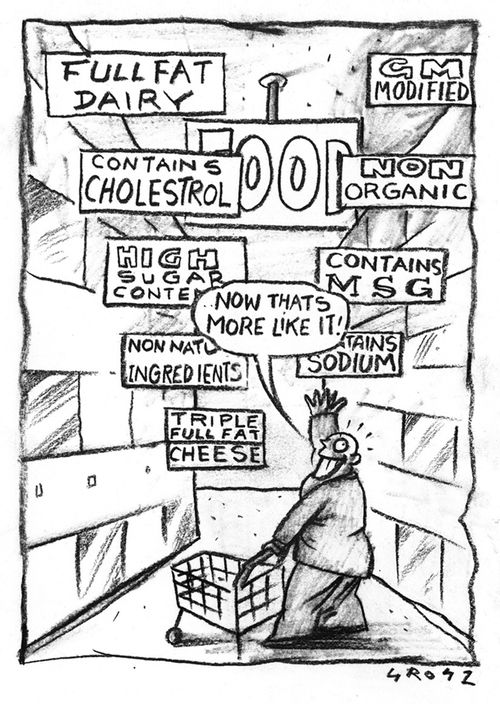 FULL FAT
DAIRY
GM
MODIFIED
FOOD
CONTAINS
CHOLESTROL
NON
ORGANIC
HIGH
SUGAR
CONTE
CONTAINS
MSG
NOW THATS
MORE LIKE IT!
NON NATU
INGREDIENTS
TAINS
SODIUM
TRIPLE
FULL FAT
CHEESE
GROSZ